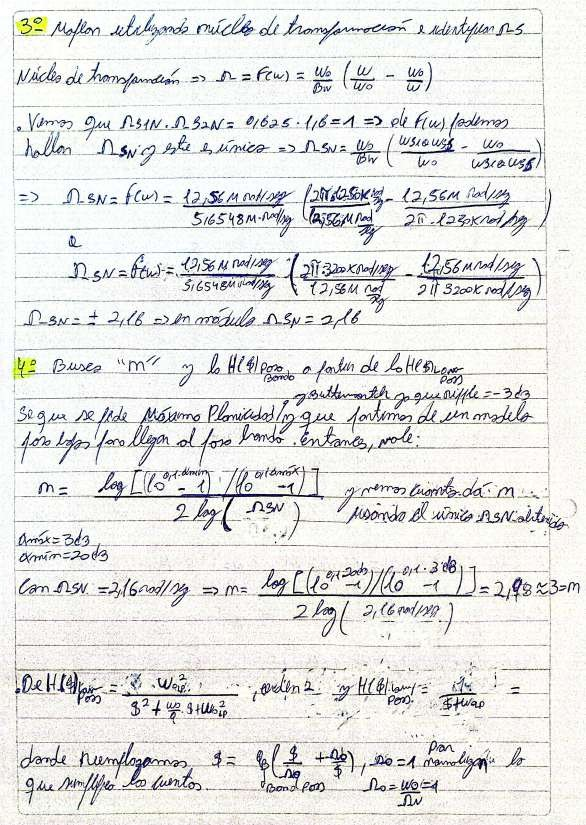 3º Hallar utilizando núcleo de transformación e identificar ΩS
Núcleo de transformación => Ω = F(w) = wo/Bw (w/wo - wo/w)
. Vemos que ΩS1N · ΩS2N = 0,625 · 1,6 = 1 => de F(w) podemos
hallar ΩSN y este es único => ΩSN = wo/Bw (/wo - wo/)
=> ΩSN = F(w) = 12,56M rad/seg / 5,6548M rad/seg (2π·1230K rad/seg / 12,56M rad/seg - 12,56M rad/seg / 2π·1230K rad/seg)
ΩSN = F(w) = 12,56M rad/seg / 5,6548M rad/seg · (2π·3200K rad/seg / 12,56M rad/seg - 12,56M rad/seg / 2π3200K rad/seg)
ΩSN = ± 2,16 => en módulo ΩSN = 2,16
4º Busco "m" y la H($) Pasa Banda a partir de la H($) Low Pass
y Butterworth ya que ripple = -3dB
Se que se pide Máxima Planicidad/ y que partimos de un modelo
pasa bajos para llegar al pasa banda. Entonces, vale:
m = log[(10^0,1·αmín - 1)/(10^0,1·αmáx - 1)] / 2 log(ΩSN) y vemos cuanto dá m
usando el único ΩSN obtenido
αmáx = 3dB
αmín = 20dB
Con ΩSN = 2,16 rad/seg => m = log[(10^0,1·20dB - 1)/(10^0,1·3dB - 1)] / 2 log(2,16 rad/seg) = 2,98 ≈ 3 = m
. De H($) Low Pass = / $² + wo/q · $ + , orden 2 y H($) Low Pass = 1 / $ + =
donde reemplazamos $ = q ($/Ωo + Ωo/$) Band Pass, Ωo = 1 Por normalización lo
que simplifica las cuentas Ωo = wo/ΩN = 1